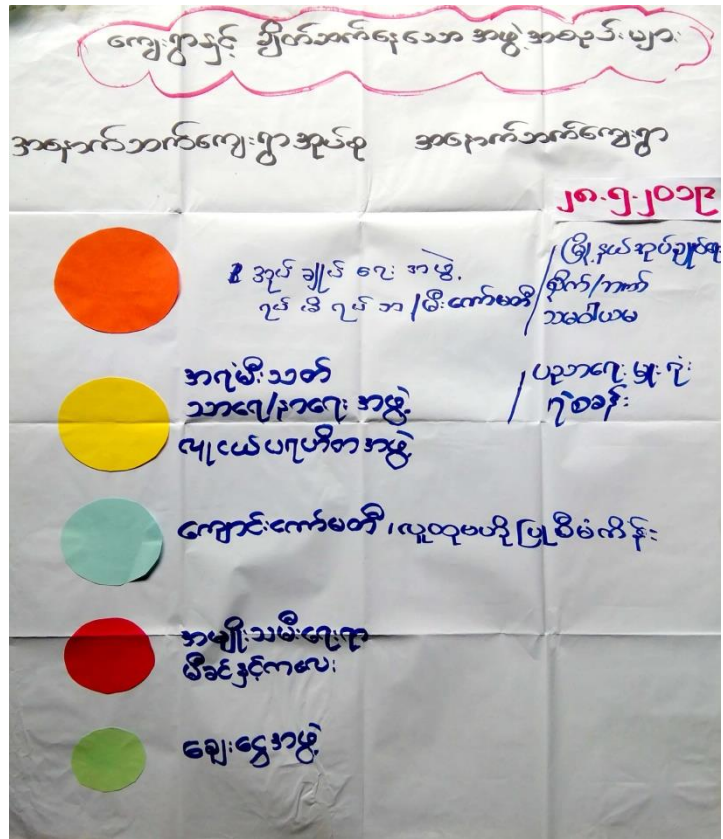 ကျေးရွာနှင့် ချိတ်ဆက်နေသော အဖွဲ့အစည်းများ
အနောက်ဘက်ကျေးရွာအုပ်စု အနောက်ဘက်ကျေးရွာ
၂၈.၅.၂၀၁၉
အုပ်ချုပ်ရေးအဖွဲ့
ရပ်မိရပ်ဖ/မီးကော်မတီ
/မြို့နယ်အုပ်ချုပ်ရေး
စိုက်/ဘဏ်
သမဝါယမ
အရံမီးသတ်
သာရေး/နာရေးအဖွဲ့
လူငယ်ပရဟိတအဖွဲ့
/ပညာရေးမှူးရုံး
ရဲစခန်း
ကျောင်းကော်မတီ၊ လူထုဗဟိုပြုစီမံကိန်း
အမျိုးသမီးရေးရာ
မိခင်နှင့်ကလေး
ချေးငွေအဖွဲ့